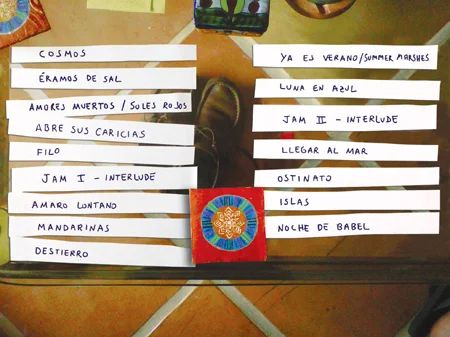 COSMOS
ÉRAMOS DE SAL
AMORES MUERTOS / SOLES ROJOS
ABRE SUS CARICIAS
FILO
JAM I - INTERLUDE
AMARO LONTANO
MANDARINAS
DESTIERRO
YA ES VERANO/SUMMER MARSHES
LUNA EN AZUL
JAM II - INTERLUDE
LLEGAR AL MAR
OSTINATO
ISLAS
NOCHE DE BABEL